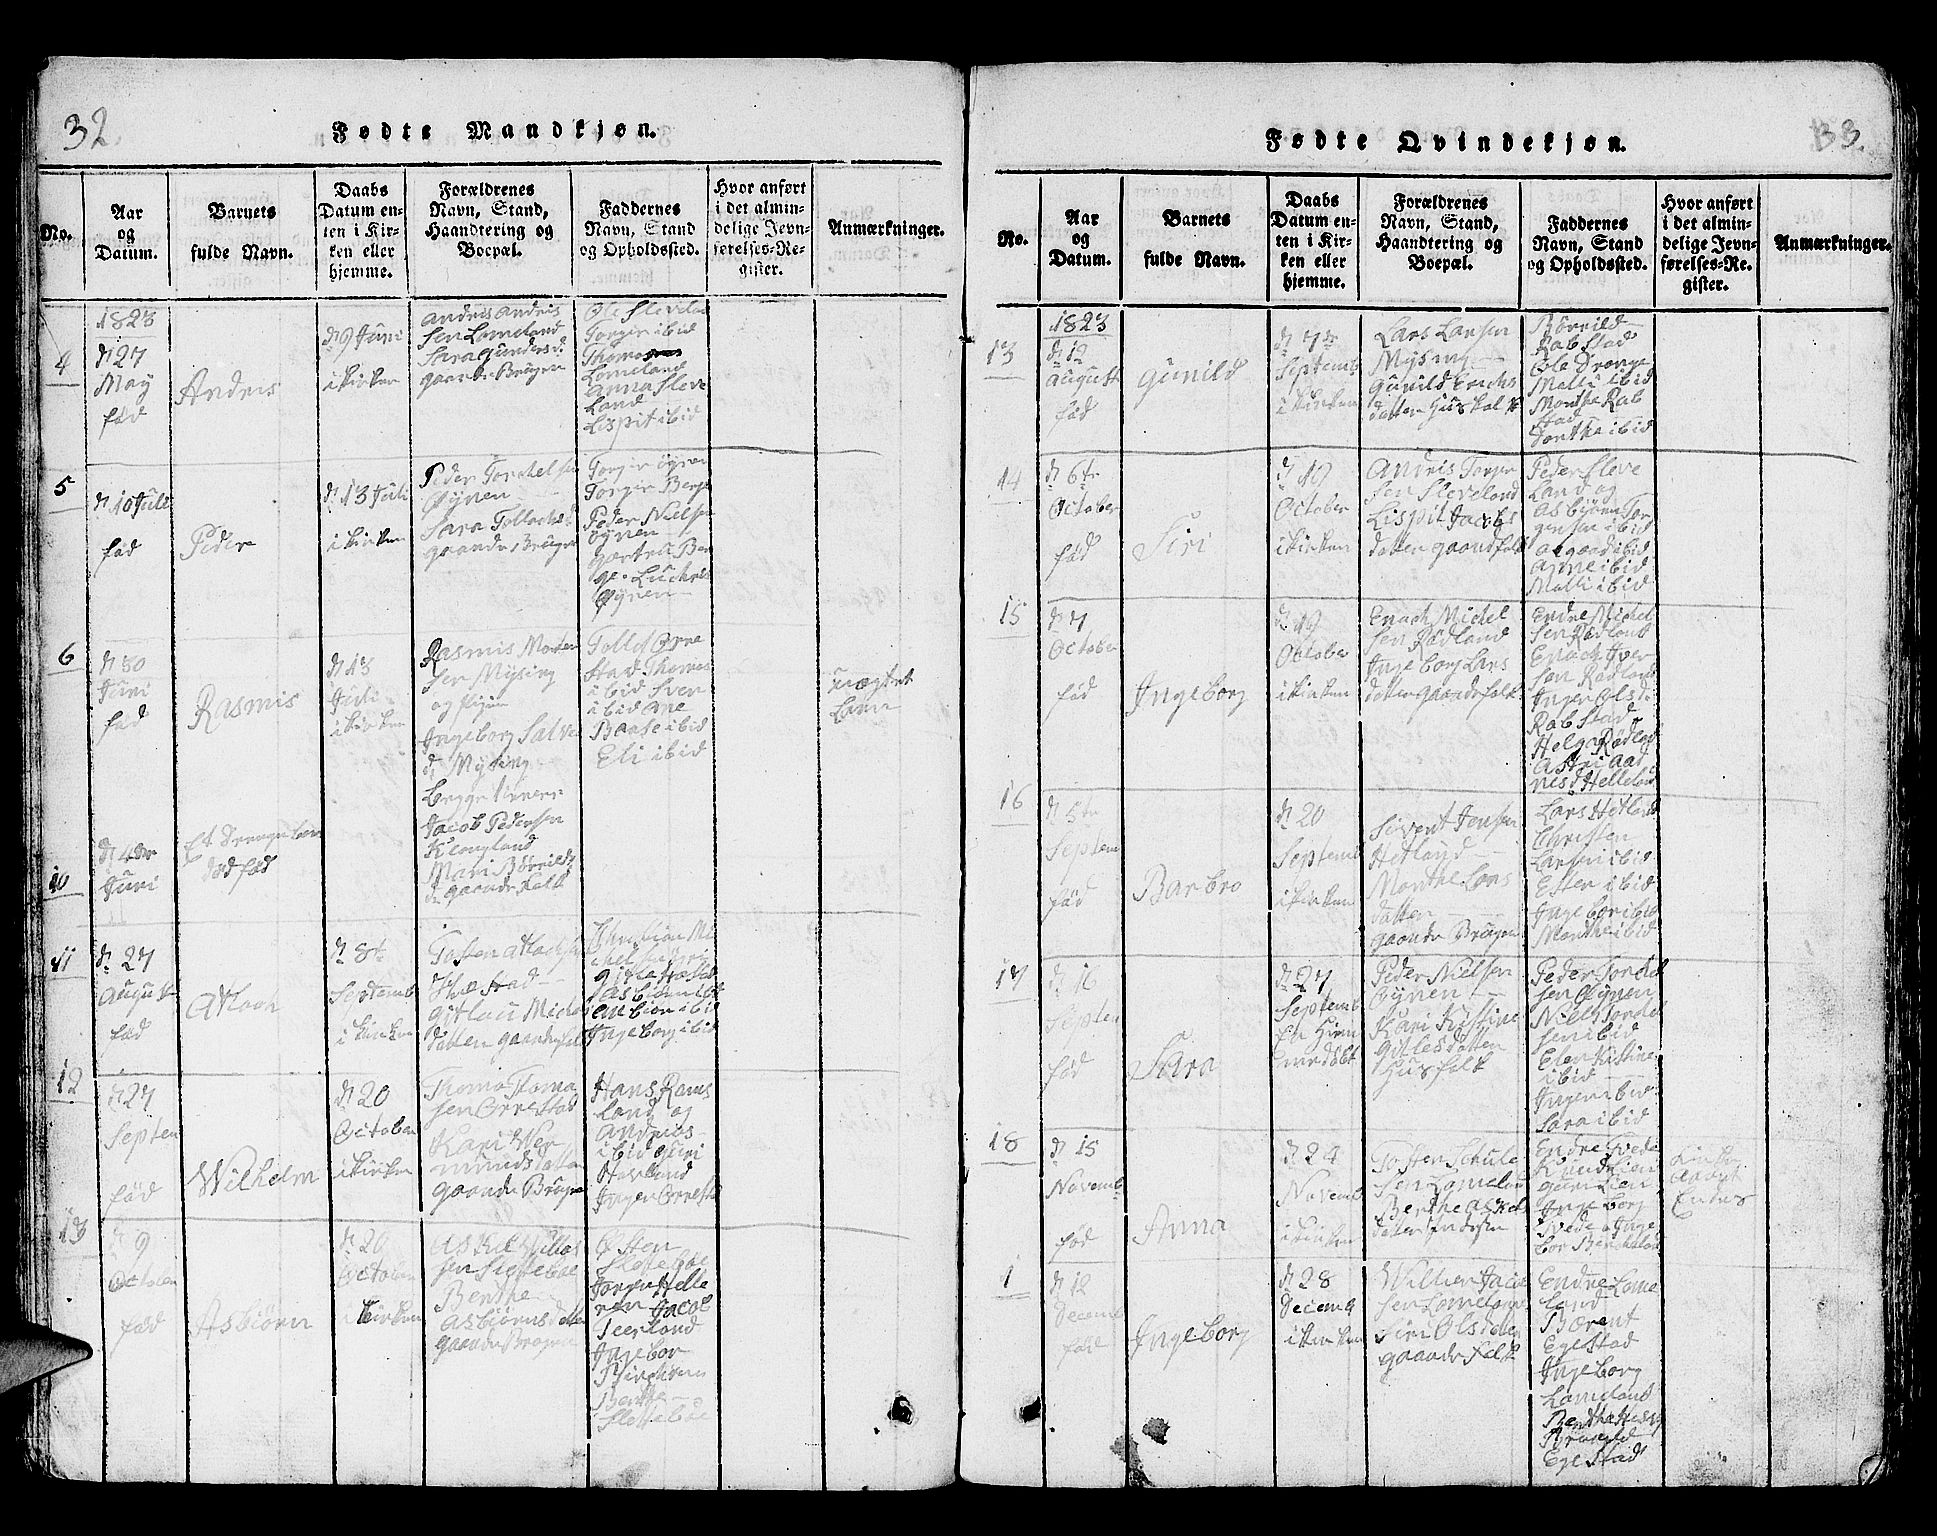 32.
Fødte Mandkjøn.
No.
Aar
og
Datum.
Barnets
fulde Navn.
Daabs
Datum en-
ten i Kir-
ken eller
hjemme.
Forældrenes
Navn, Stand,
Haandtering og
Boepæl.
Faddernes
Navn, Stand
og Opholdssted.
Hvor anført
i det almin-
delige Jevn-
førelses-Re-
gister.
Anmærkninger.
4
1823
d 27
May
fød
Andris
d 9 Juni
i kirken
Andris Andris
sen Lomeland
Sara Gunders d
gaarde Brugen
Ole Sleveland
Torgir ibid
Thomas
Lomeland
Anna Sleve
land
Lispit ibid
5
d 10 Juli
fød
Peder
d 13 Juli
i kirken
Peder Torchelsen
Øynen
Sara Tollachsd
gaande Brugen
Torgir Øynen
Torgir Berge
Peder Nielsen
Øynen
Gortru Ber
ge. Luchris
Øynen
6
d 30
Juni
fød
Rasmis
d 13
Juli
i kirken
Rasmis Morten
sen Mysing
og pigen
Ingeborg Salve
d Mysing
begge tienere
Tollof Orre
stad Thomas
ibid Sven
ibid Ane
Baase ibid
Eli ibid
uægtet
barn
10
d 4de
Juni
Et Drenge barn
død fød
Jacob Pedersen
Klongland
Mari Børrilds
d gaande Folk
11
d 27
August
fød
Atlach
d 8t
Septemb
i kirken
Tosten Atlachsen
Hæstad
Gitlau Michels
datter gaande folk
Christian Mi
chelsen og
Gitle Hæstad
Asbiørn ibid
Enebior ibid
Ingeborg ibid
12
d 27
Septem
fød
Wilhelm
d 20
October
i kirken
Thoma Thoma
sen Ørrestad
Kari Wer
munds datter
gaande Brugen
Hans Rams
land og
Andreas
ibid Guri
Hovland
Inger Orrestad
13
d 9
October
fød
Asbiørn
d 20
October
i kirken
Askil Villas
sen Sletteboe
Berthe
Asbiørns datter
gaande Brugen
Østen
Sletteboe
Jorgen Helle
ren Jacob
Teerland
Ingebor
Birchenes
Berthe
Sletteboe
33.
Fødte Qvindekjøn.
No.
Aar
og
Datum.
Barnets
fulde Navn.
Daabs
Datum en-
ten i Kir-
ken eller
hjemme.
Forældrenes
Navn, Stand,
Haandtering og
Boepæl.
Faddernes
Navn, Stand
og Opholdssted.
Hvor anført
i det almin-
delige Jevn-
førelses-Re-
gister.
Anmærkninger.
13
1823
d 12
August
fød
Gunild
d 7de
Septemb
i kirken
Lars Larsen
Mysing
Gunild Erichs
datter Husfolk
Børrild
Rabstad
Ole Drange
Malli ibid
Monthe Rab
stad
Dorthe ibid
14
d 6te
October
fød
Siri
d 19
October
i kirken
Andris Torger
sen Sleveland
Lispit Jacobs
datter gaand folk
Peder Sleve
land og
Asbiørn Tor
gersen ibid
Aagaad ibid
Arne ibid
Malli ibid
15
d 7
October
fød
Ingeborg
d 19
October
i kirken
Enoch Michel
sen Rødland
Ingeborg Lars
datter gaande folk
Endre Michel
sen Rødland
Enoch Iver
sen Rødland
Inger Olsd:
Rabstad
Helga Rødland
Astri Aad
nesd Helleland
16
d 5te
Septem
fød
Barbro
d 20
Septemb
i kirken
Sivert Jensen
Hetland
Monthe Lars
datter
gaande Brugen
Lars Hetland
Christen
Larsen ibid
Esten ibid
Ingebor ibid
Monthe ibid
17
d 16
Septem
fød
Sara
d 27
Septemb
Peder Nielsen
Øynen
Kari Kistine
Gitlesdatter
Husfolk
Peder Torchel
sen Øynen
Niels Torchel
sen ibid
Elen Kistine
ibid
Inger ibid
Sara ibid
18
d 15
Novemb
fød
Anna
d 24
Novemb
i kirken
Tosten Schule
sen Lomeland
Berthe Askels
datter Inderstn
Endre Tvede
Knud Lien
Guri Lien
Ingeborg
Tvede Inge
bor Birchland
1
d 12
Decemb
fød
Ingeborg
d 28
Decemb
i kirken
Willien Jacob
sen Lomeland
Siri Olsdatter
gaande Folk
Endre Lome
land
Bærent
Egestad
Ingeborg
Lomeland
Egestad